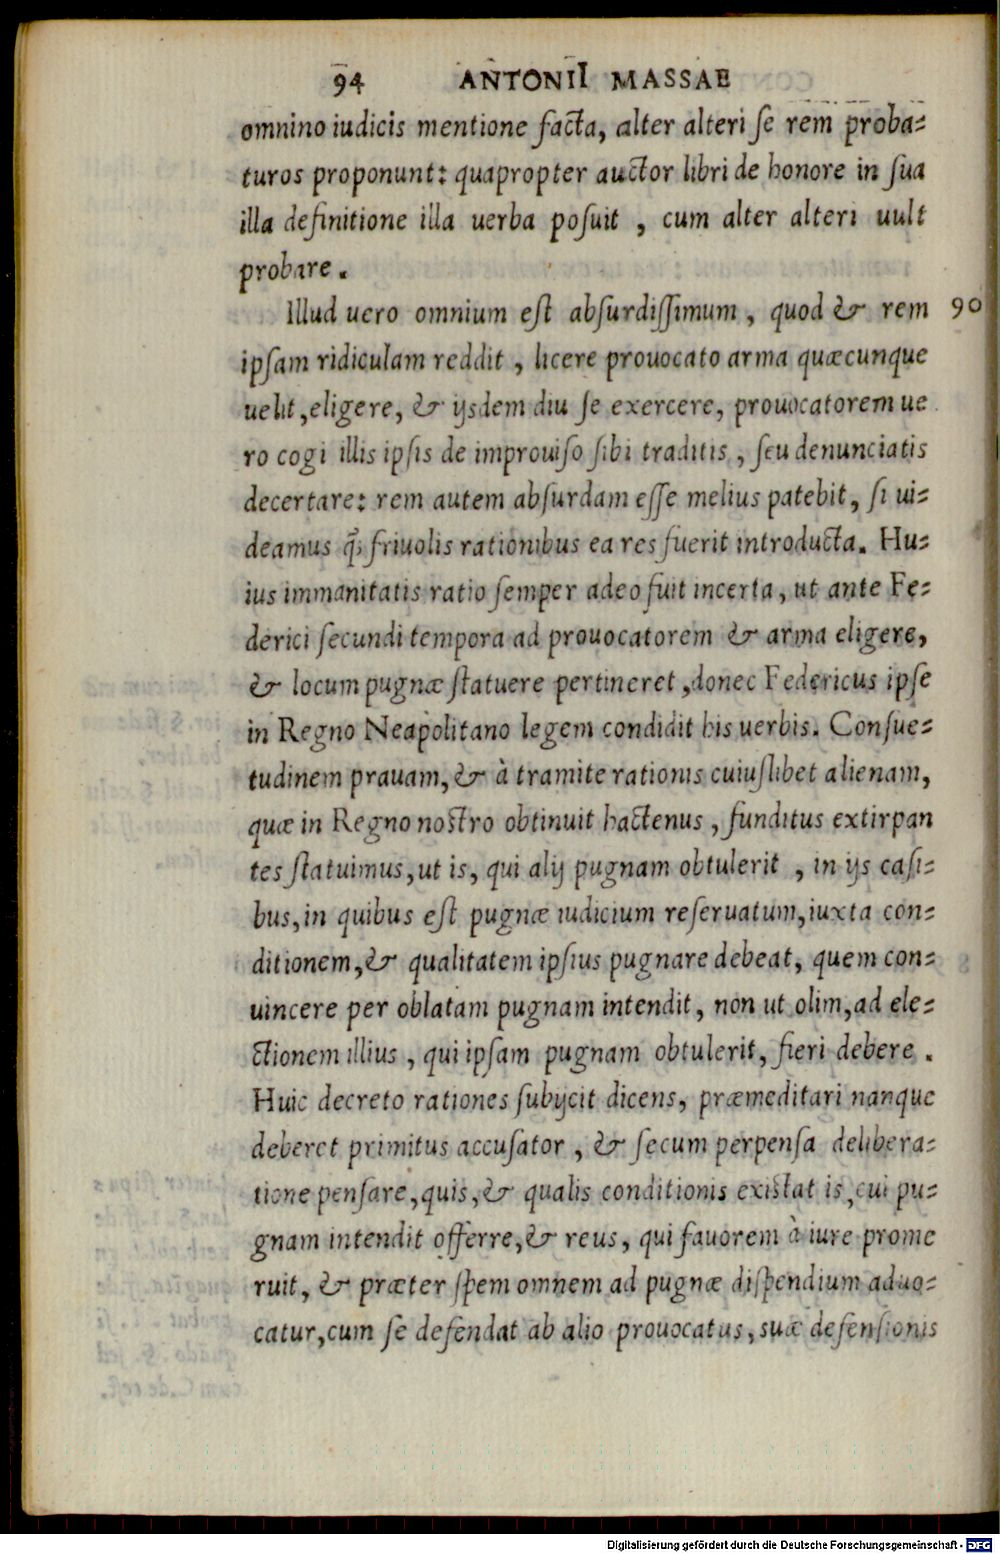 94 ANTONII MASSAE
omnino iudicis mentione facta, alter alteri se rem proba-
turos proponunt: quapropter auctor libri de honore in sua
illa definitione illa uerba posuit , cum alter alteri uult
probare .
Illud uero omnium est absurdissimum , quod & rem 90
ipsam ridiculam reddit , licere prouocato arma quæcunque
uelit, eligere, & ijsdem diu se exercere, prouocatorem ue
ro cogi illis ipsis de improuiso sibi traditis , seu denunciatis
decertare: rem autem absurdam esse melius patebit, si ui-
deamus q̃ friuolis rationibus ea res fuerit introducta. Hu-
ius immanitatis ratio semper adeo fuit incerta, ut ante Fe-
derici secundi tempora ad prouocatorem & arma eligere,
& locum pugnæ statuere pertineret , donec Federicus ipse
in Regno Neapolitano legem condidit his uerbis. Consue-
tudinem prauam, & à tramite rationis cuiuslibet alienam,
quæ in Regno nostro obtinuit hactenus , funditus extirpan
tes statuimus, ut is, qui alij pugnam obtulerit , in ijs casi-
bus, in quibus est pugnæ iudicium reseruatum, iuxta con-
ditionem, & qualitatem ipsius pugnare debeat, quem con-
uincere per oblatam pugnam intendit, non ut olim, ad ele-
ctionem illius , qui ipsam pugnam obtulerit, fieri debere .
Huic decreto rationes subijcit dicens, præmeditari nanque
deberet primitus accusator , & secum perpensa delibera-
tione pensare, quis, & qualis conditionis existat is, cui pu-
gnam intendit offerre, & reus, qui fauorem à iure prome
ruit, & præter spem omnem ad pugnæ dispendium aduo-
catur, cum se defendat ab alio prouocatus, suæ defensionis
Digitalisierung gefördert durch die Deutsche Forschungsgemeinschaft - DFG